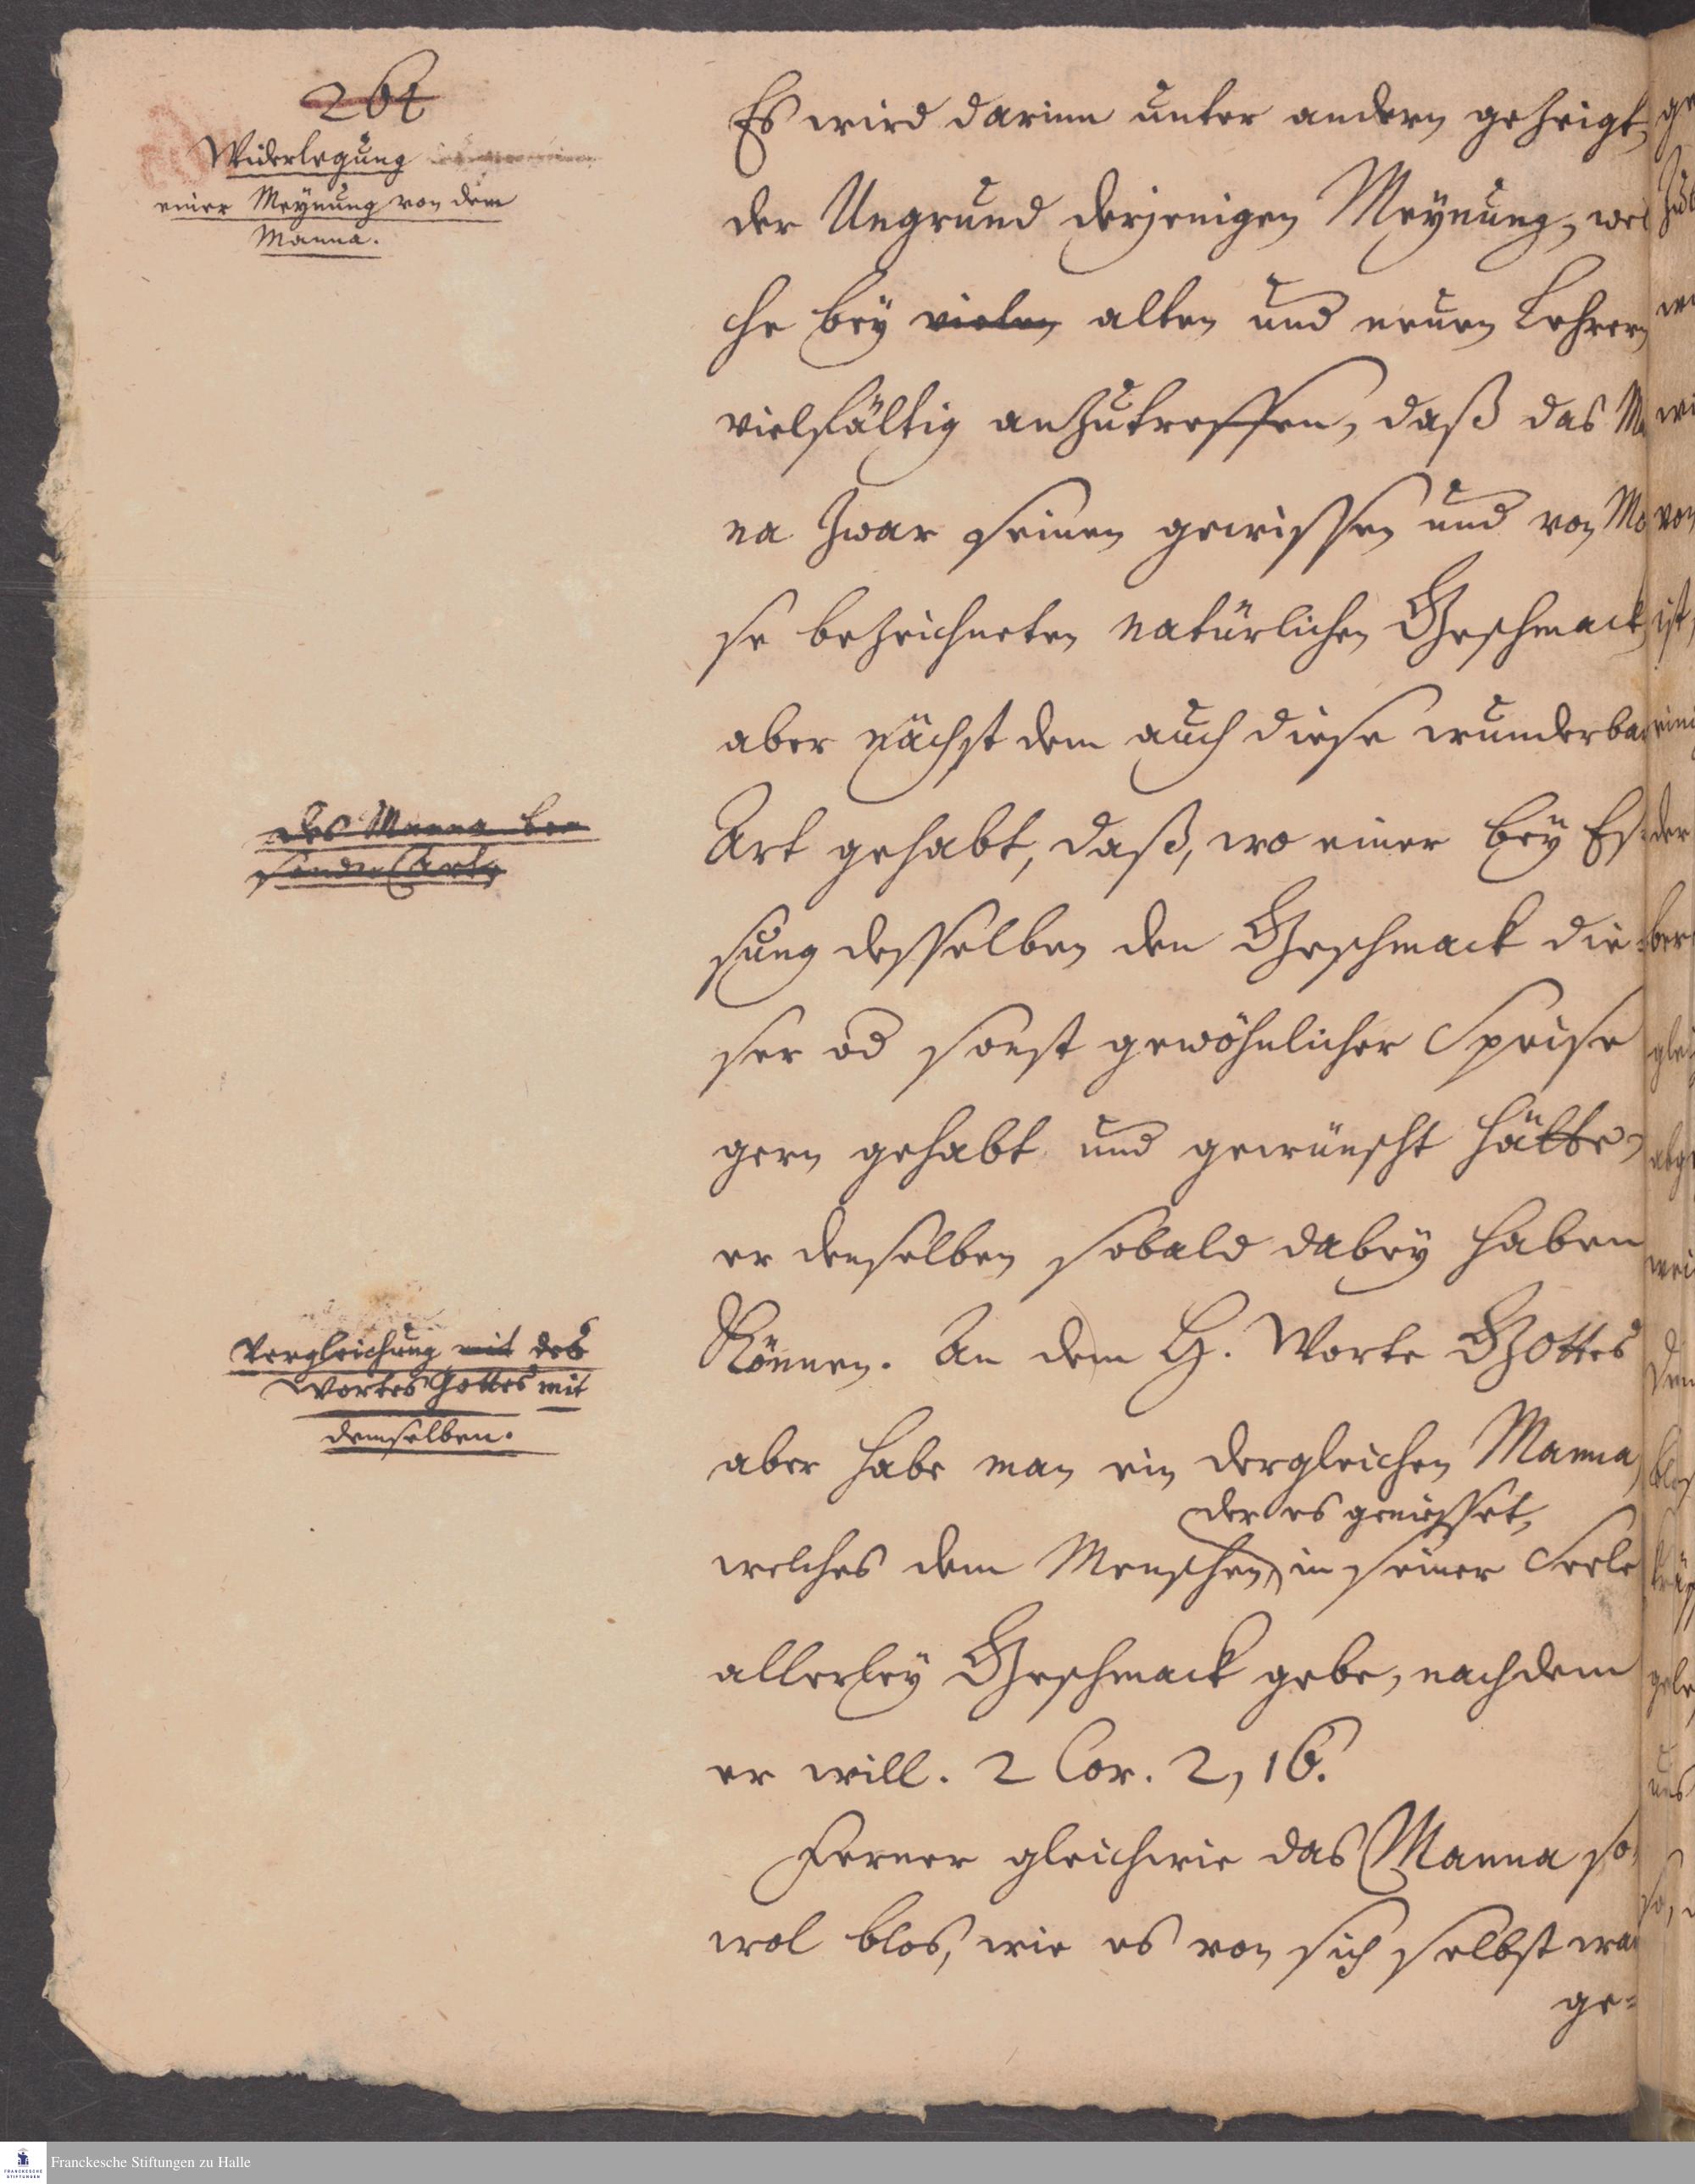 264
Widerlegung
einer Meynung von dem
Manna.
Es wird darinn unter andern gezeigt,
der Ungrund derjenigen Meynung, wel
che bey vielen alten und neuen Lehrern
vielfältig anzutreffen, daß das Ma
na zwar seinen gewissen und von Mo
se bezeichneten natürlichen Geschmack,
aber nächst dem auch diese wunderbar
des Manna be
sondre Art
Art gehabt, daß, wo einer bey Es-
sung desselben den Geschmack die-
ser od sonst gewöhnlicher Speise
gern gehabt und gewünscht hätte,
er denselben sobald dabey haben
Können. An dem H. Worte Gottes
Vergleichung mit des
Wortes Gottes mit
demselben.
aber habe man ein dergleichen Manna,
der es geniesset,
welches dem Menschen, in seiner Seele
allerley Geschmack gebe, nachdem
er will. 2 Cor. 2, 16.
Ferner gleichwie das Manna so
wol blos, wie es von sich selbst war
ge-
Franckesche Stiftungen zu Halle